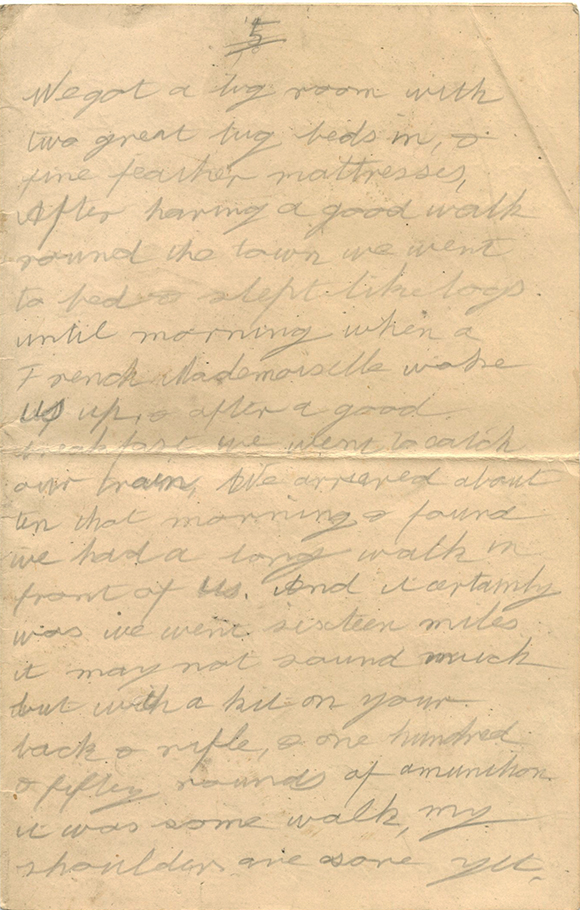 5
We got a big room with
two great big beds in, &
fine feather mattresses,
After having a good walk
round the town we went
to bed & slept like logs
until morning when a
French Mademoiselle woke
us up, & after a good
breakfast we went to catch
our train, We arrived about
ten that morning & found
we had a long walk in
front of us. And it certainly
was we went sixteen miles
it may not sound much
but with a kit on your
back & rifle, & one hundred
& fifty rounds of amunition
it was some walk, my
shoulders are sore yet.